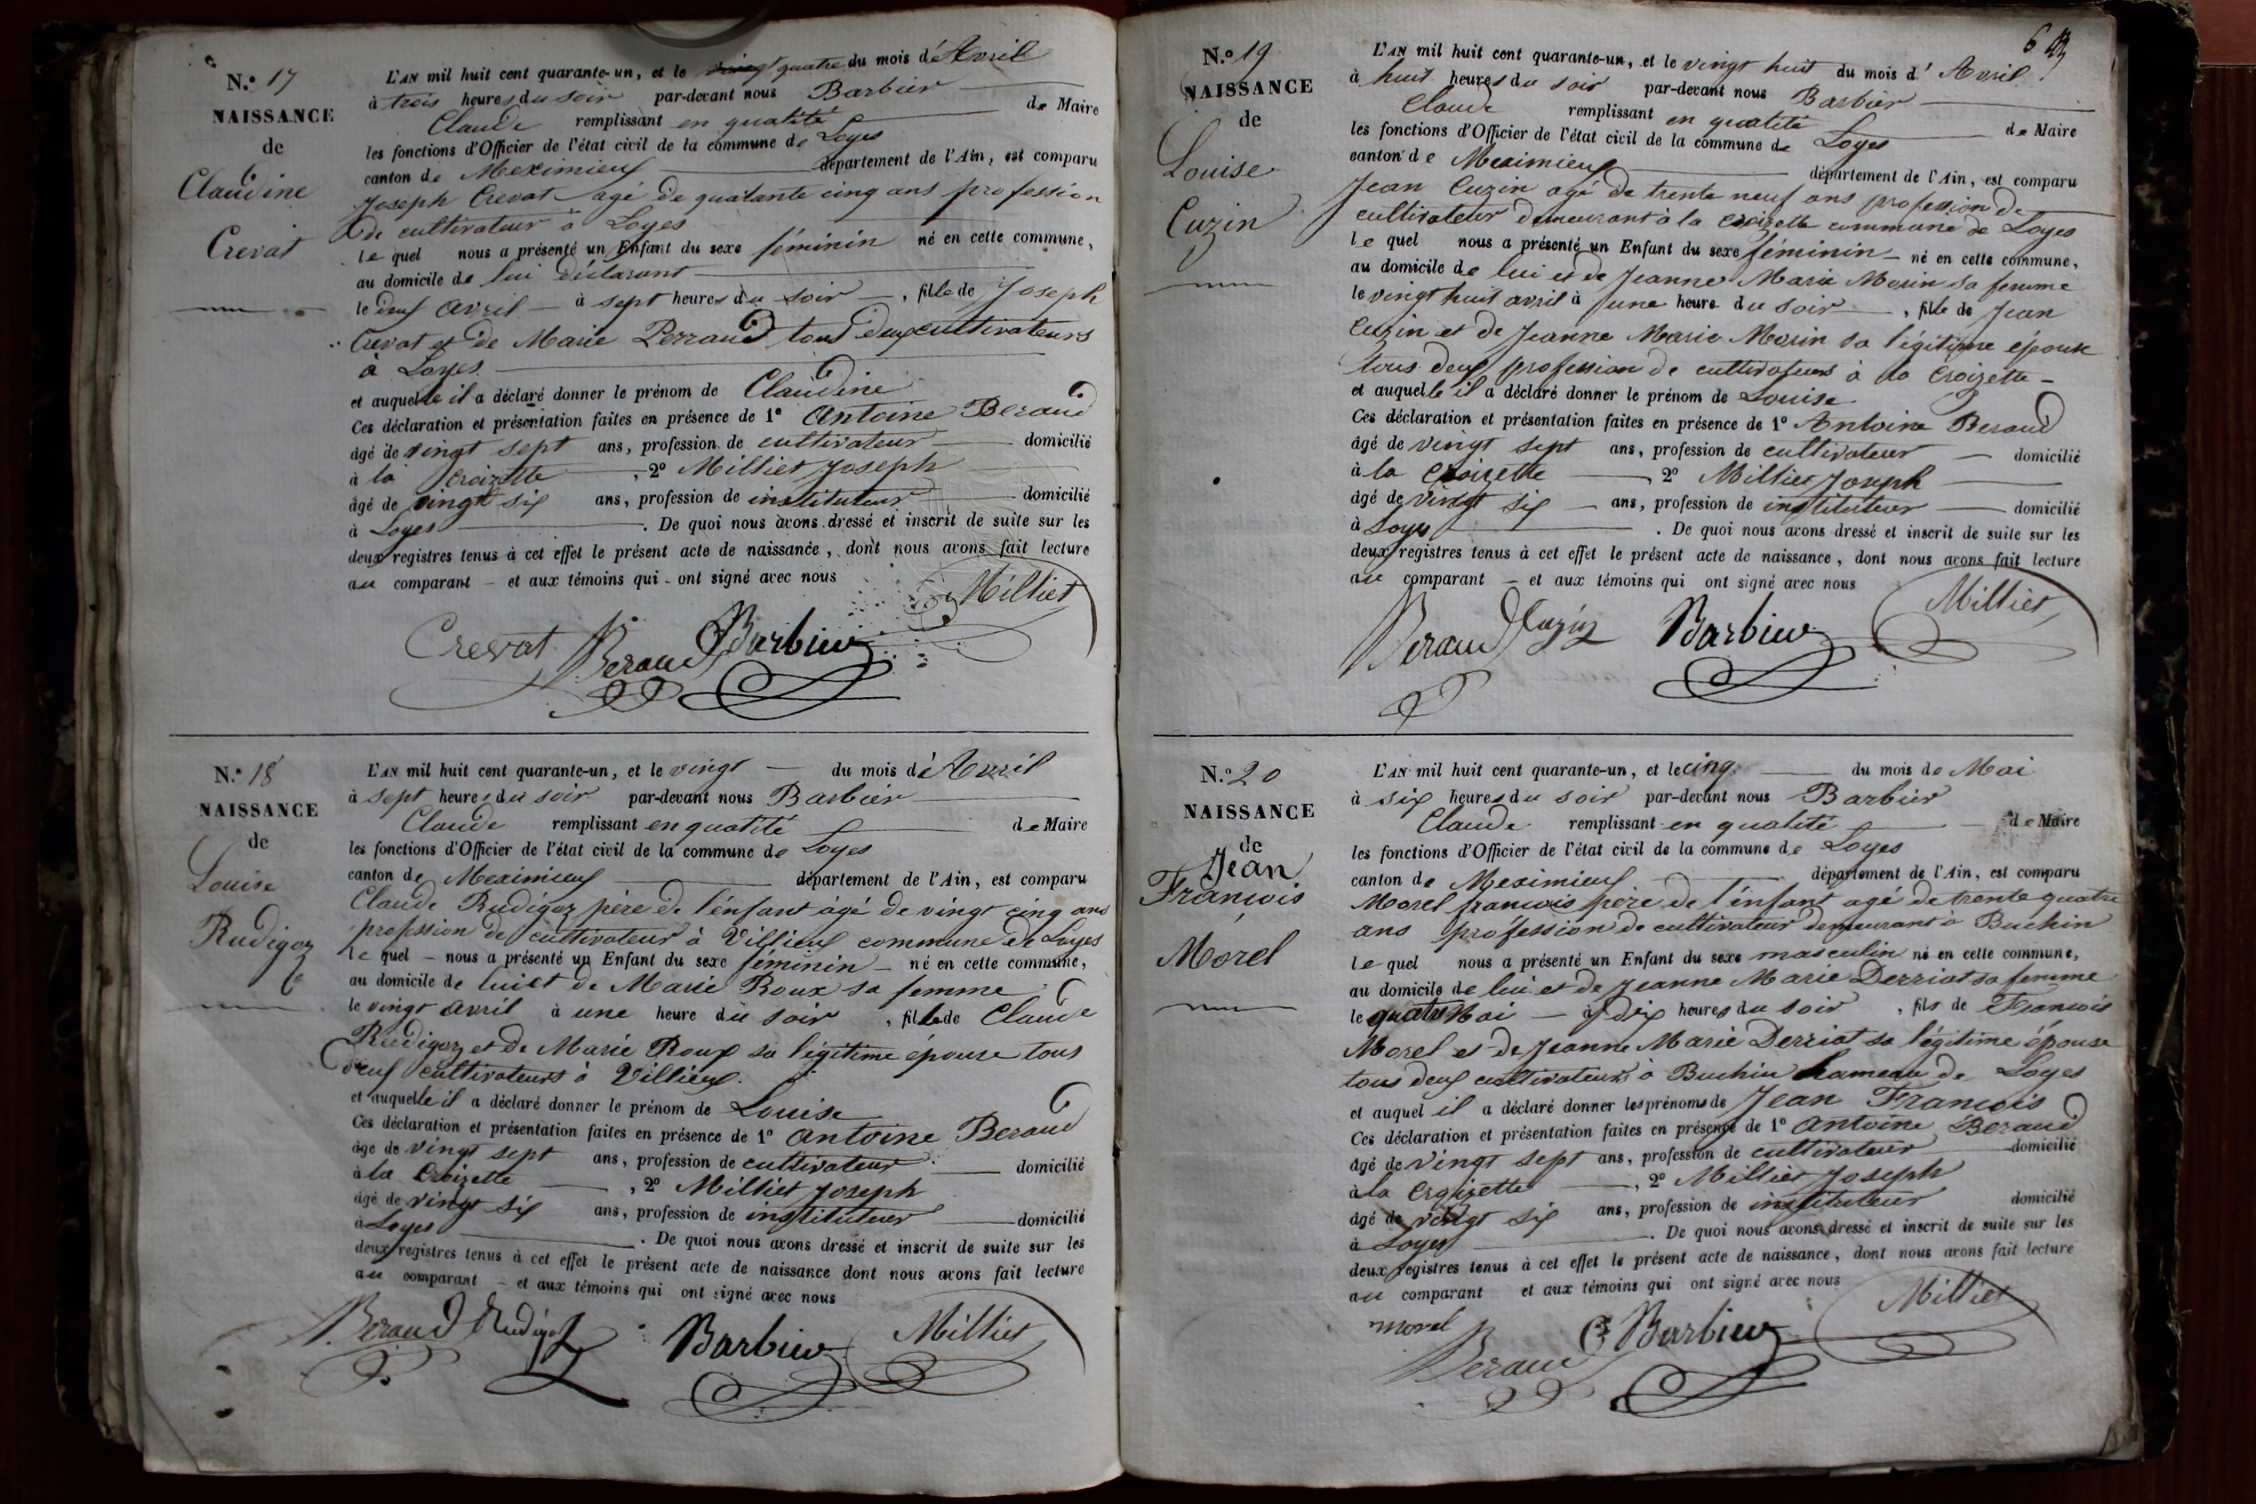 N.º 17
NAISSANCE
de
Claudine
Crevat
L'AN mil huit cent quarante-un, et le vingt quatre du mois d'Avril
à trois heures du soir par-devant nous Barbier
Claude remplissant en qualité de Maire
les fonctions d'Officier de l'état civil de la commune de Loyes
canton de Meximieux département de l'Ain, est comparu
Joseph Crevat agé de quatante cinq ans profession
de cultivateur à Loyes
le quel nous a présenté un Enfant du sexe féminin né en cette commune,
au domicile de lui déclarant
le deux avril à sept heures du soir, fille de Joseph
Crevat et de Marie Perraud tous deux cultivateurs
à Loyes.
et auquelle il a déclaré donner le prénom de Claudine
Ces déclaration et présentation faites en présence de 1º Antoine Beraud
âgé de vingt sept ans, profession de cultivateur domicilié
à la Croizette, 2º Milliet Joseph
âgé de vingt six ans, profession de instituteur domicilié
à Loyes. De quoi nous avons dressé et inscrit de suite sur les
deux registres tenus à cet effet le présent acte de naissance, dont nous avons fait lecture
au comparant et aux témoins qui ont signé avec nous
Milliet
Crevat Beraud Barbier
N.º 18
NAISSANCE
de
Louise
Rudigoz
L'AN mil huit cent quarante-un, et le vingt du mois d'Avril
à sept heures du soir par-devant nous Barbier
Claude remplissant en qualité de Maire
les fonctions d'Officier de l'état civil de la commune de Loyes
canton de Meximieux département de l'Ain, est comparu
Claude Rudigoz père de l'énfant âgé de vingt cinq ans
profssion de cultivateur à Villieux commune de Loyes
le quel nous a présenté un Enfant du sexe féminin né en cette commune,
au domicile de lui et de Marie Roux sa femme
le vingt avril à une heure du soir, fille de Claude
Rudigoz et de Marie Roux sa légitime épouse tous
deux cultivateurs à Villieux.
et auquelle il a déclaré donner le prénom de Louise
Ces déclaration et présentation faites en présence de 1º Antoine Beraud
âge de vingt sept ans, profession de cultivateur domicilié
à la Croizette, 2º Milliet Joseph
âgé de vingt six ans, profession de instituteur domicilié
à Loyes. De quoi nous avons dressé et inscrit de suite sur les
deux registres tenus à cet effet le présent acte de naissance dont nous avons fait lecture
au comparant et aux témoins qui ont signé avec nous
Beraud Rudigoz Barbier Milliet
6
N.º 19
NAISSANCE
de
Louise
Cuzin
L'AN mil huit cent quarante-un, et le vingt huit du mois d'Avril
à huit heures du soir par-devant nous Barbier
Claude remplissant en qualité de Maire
les fonctions d'Officier de l'état civil de la commune de Loyes
canton de Meximieux département de l'Ain, est comparu
Jean Cuzin agé de trente neuf ans profession de
cultivateur demeurant à la croizette commune de Loyes
le quel nous a présenté un Enfant du sexe féminin né en cette commune,
au domicile de lui et de Jeanne Marie Morin sa femme
le vingt huit avril à une heure du soir, fille de Jean
Cuzin et de Jeanne Marie Morin sa légitime épouse
tous deux profession de cultivateurs à la Croizette
et auquelle il a déclaré donner le prénom de Louise
Ces déclaration et présentation faites en présence de 1º Antoine Beraud
âgé de vingt sept ans, profession de cultivateur domicilié
à la Croizette, 2º Milliet Joseph
âgé de vingt six ans, profession de instituteur domicilié
à Loyes. De quoi nous avons dressé et inscrit de suite sur les
deux registres tenus à cet effet le présent acte de naissance, dont nous avons fait lecture
au comparant et aux témoins qui ont signé avec nous
Beraud Cuzin Barbier Milliet
N.º 20
NAISSANCE
de
Jean
François
Morel
L'AN mil huit cent quarante-un, et le cinq du mois de Mai
à six heures du soir par-devant nous Barbier
Claude remplissant en qualité de Maire
les fonctions d'Officier de l'état civil de la commune de Loyes
canton de Meximieux département de l'Ain, est comparu
Morel françois père de l'énfant agé de trente quatre
ans proféssion de cultivateur demeurant à Buchin
le quel nous a présenté un Enfant du sexe masculin né en cette commune,
au domicile de lui et de Jeanne Marie Derriat sa femme
le quatre Mai à dix heures du soir, fils de François
Morel et de Jeanne Marie Derriat sa légitime épouse
tous deux cultivateurs à Buchin hameau de Loyes
et auquel il a déclaré donner les prénoms de Jean François
Ces déclaration et présentation faites en présence de 1º Antoine Beraud
âgé de vingt sept ans, profession de cultivateur domicilié
à la Croizette, 2º Milliet Joseph
âgé de vingt six ans, profession de instituteur domicilié
à Loyes. De quoi nous avons dressé et inscrit de suite sur les
deux registres tenus à cet effet le présent acte de naissance, dont nous avons fait lecture
au comparant et aux témoins qui ont signé avec nous
morel Beraud Barbier Milliet